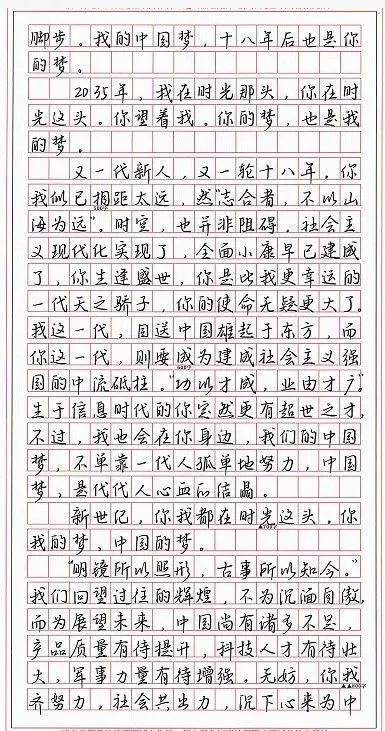 脚步。我的中国梦，十八年后也是你
的梦。
2035年，我在时光那头，你在时
光这头。你望着我。你的梦，也是我
的梦。
又一代新人，又一轮十八年。你
我似已相距太远，然“志合者，不以山
海为远”。时空，也并非阻碍。社会主
义现代化实现了，全面小康早已建成
了，你生逢盛世，你是比我更幸运的
一代天之骄子，你的使命无疑更大了。
我这一代，目送中国雄起于东方，而
你这一代，则要成为建成社会主义强
国的中流砥柱。“功以才成，业由才广”。
生于信息时代的你定然更有超世之才，
不过，我也会在你身边，我们的中国
梦，不单靠一代人孤单地努力，中国
梦，是代代人心血的结晶。
新世纪，你我都在时光这头。你
我的梦，中国的梦。
“明镜所以照形，古事所以知今。”
我们回望过往的辉煌，不为沉湎自傲，
而为展望未来，中国尚有诸多不足，
产品质量有待提升，科技人才有待壮
大，军事力量有待增强。无妨，你我
齐努力，社会共出力，沉下心来为中
▲600字
▲▲800字